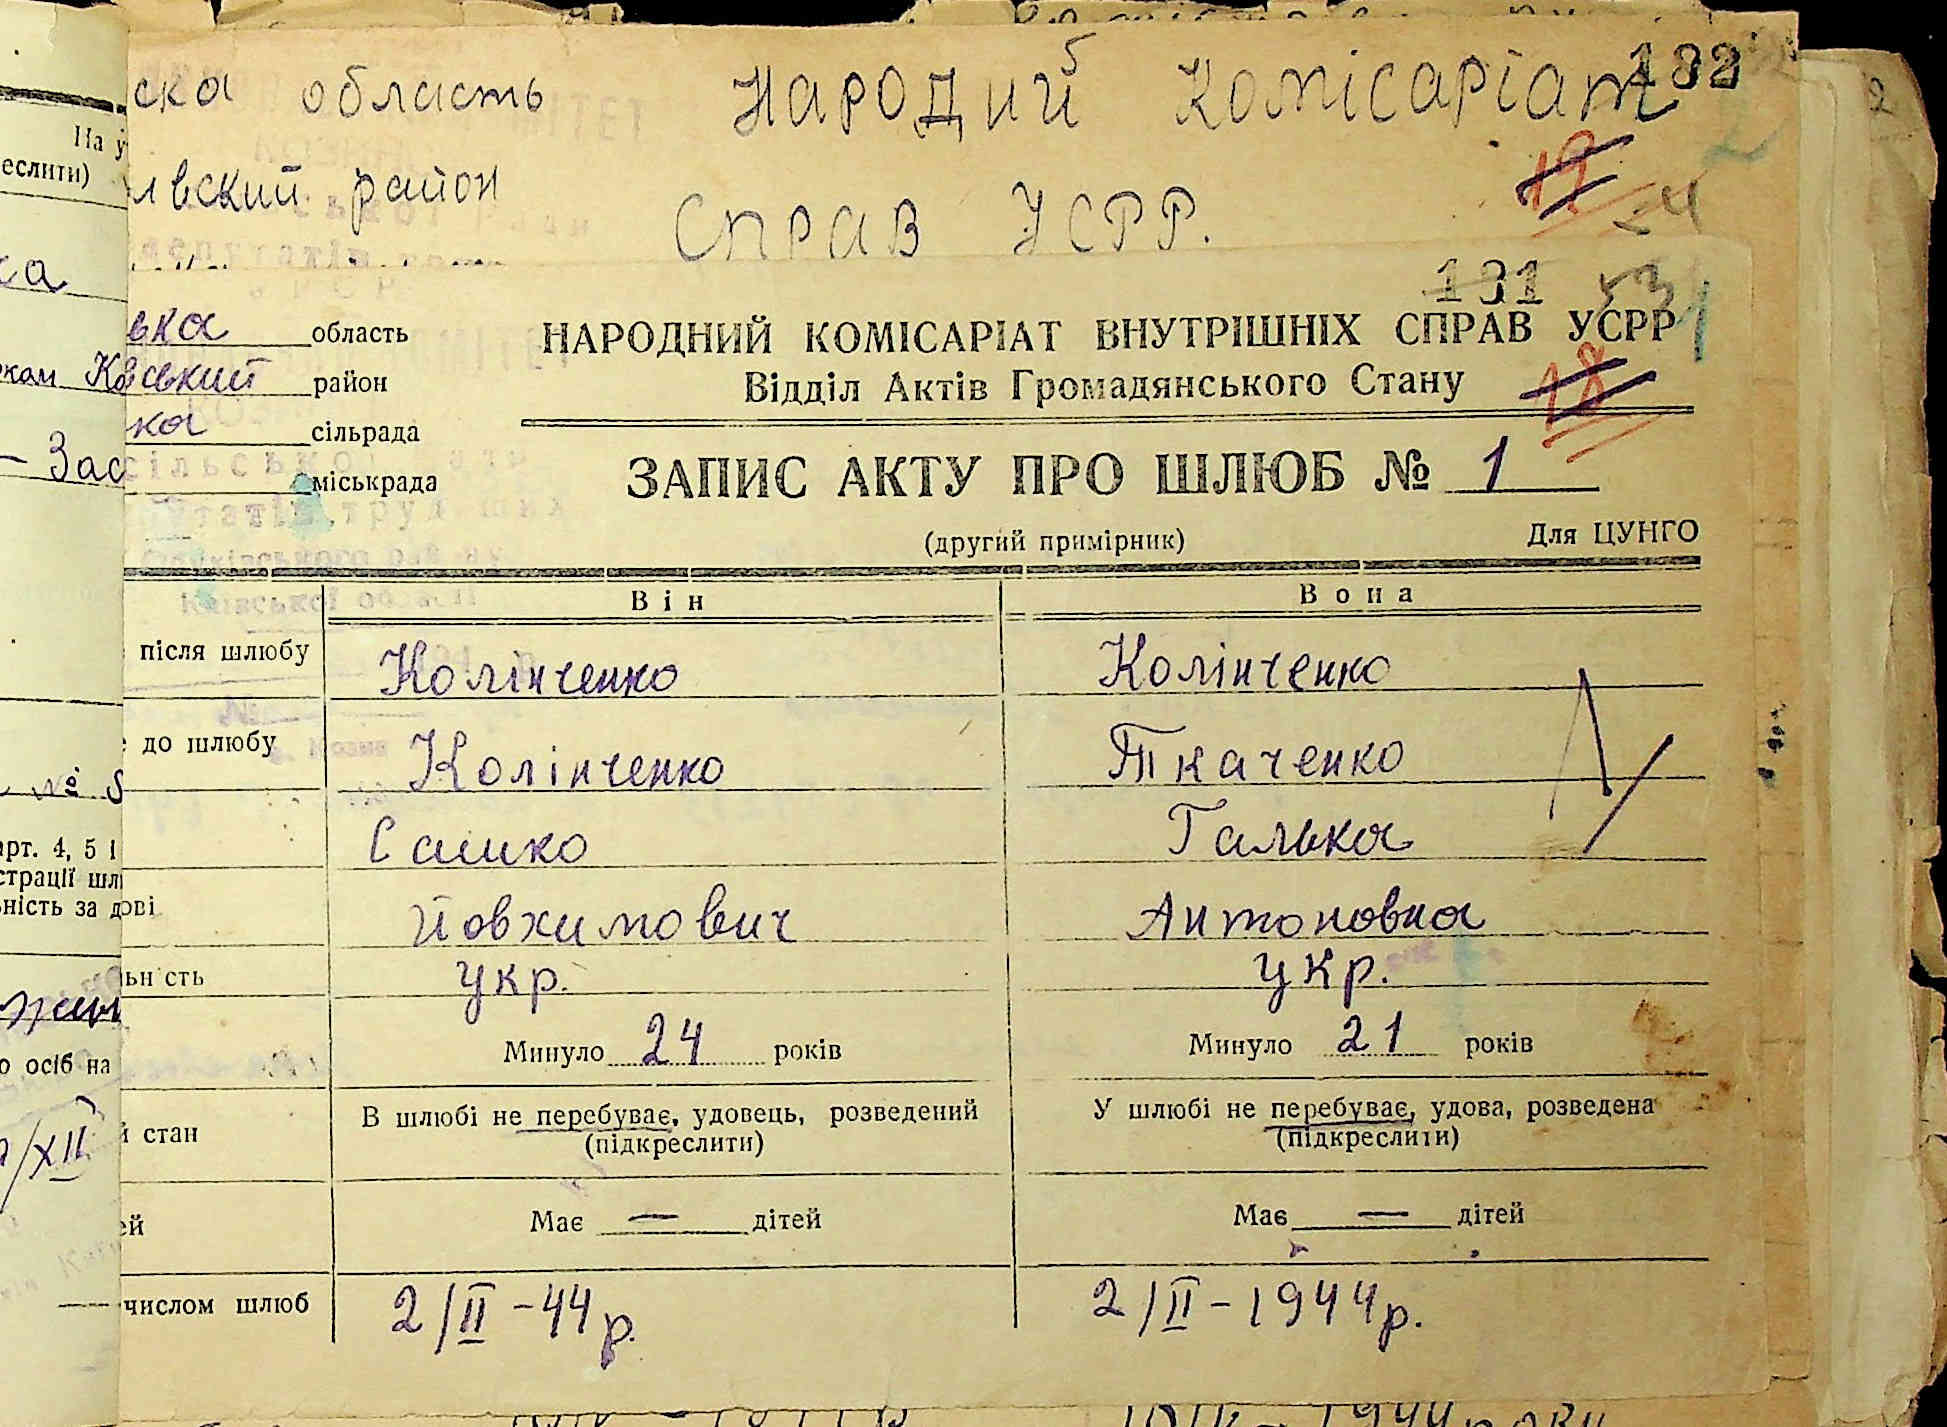 ска область Народий Комісаріат 132
лвский район
Справ УСРР.
19
54
131 53
вка область НАРОДНИЙ КОМІСАРІАТ ВНУТРІШНІХ СПРАВ УСРР
ський район Відділ Актів Громадянського Стану 18
ка сільрада
міськрада ЗАПИС АКТУ ПРО ШЛЮБ № 1
(другий примірник) Для ЦУНГО
Він Вона
після шлюбу Колінченко Колінченко
до шлюбу Колінченко Ткаченко
Сашко Галька
ові Йовхимович Антоновна
ьність укр. укр.
Минуло 24 років Минуло 21 років
стан В шлюбі не перебуває, удовець, розведений У шлюбі не перебуває, удова, розведена
(підкреслити) (підкреслити)
ей Має — дітей Має — дітей
числом шлюб 2/II-44р. 2/II-1944р.
На у
еслити)
ка
Зас
№
арт. 4, 5 і
страції шл
ьність за д
о осіб на
/XII